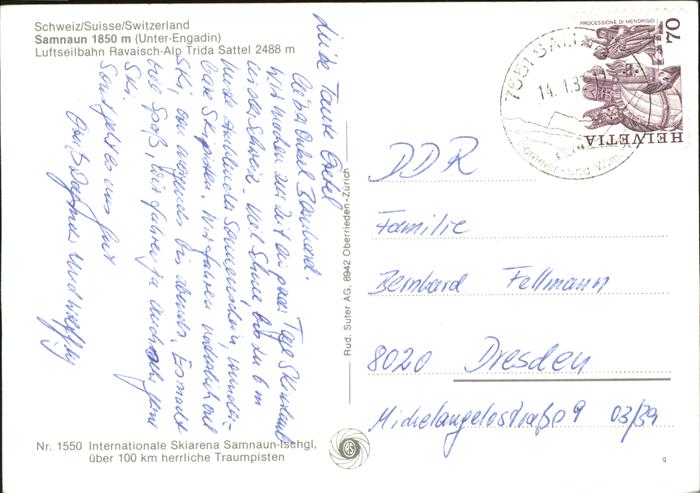 Schweiz/Suisse/Switzerland
Samnaun 1850 m (Unter-Engadin)
Luftseilbahn Ravaisch-Alp Trida Sattel 2488 m
Liebe Tante
lieber Onkel Bernhard.
Wir machen zur Zeit ein paar Tage Skiurlaub
in der Schweiz. Schnee bis zu 6 m
heute Sonnenschein, wunder-
bare Skipisten. Wir fahren natürlich viel
Ski, von morgens bis abends. Es macht
viel Spaß, wir fahren ja auch alle gern
Ski.
Sonst geht es uns gut
Gruß Dagmar und
Rud. Suter AG, 8942 Oberrieden-Zürich
PROCESSIONE DI MENDRISIO
70
HELVETIA
7551 SAMNAUN
14.1.8
Sommer- und Winter
DDR
Familie
Bernhard Fellmann
8020 Dresden
Michelangelostraße 9 03/39
Nr. 1550 Internationale Skiarena Samnaun-Ischgl,
über 100 km herrliche Traumpisten
RS
9